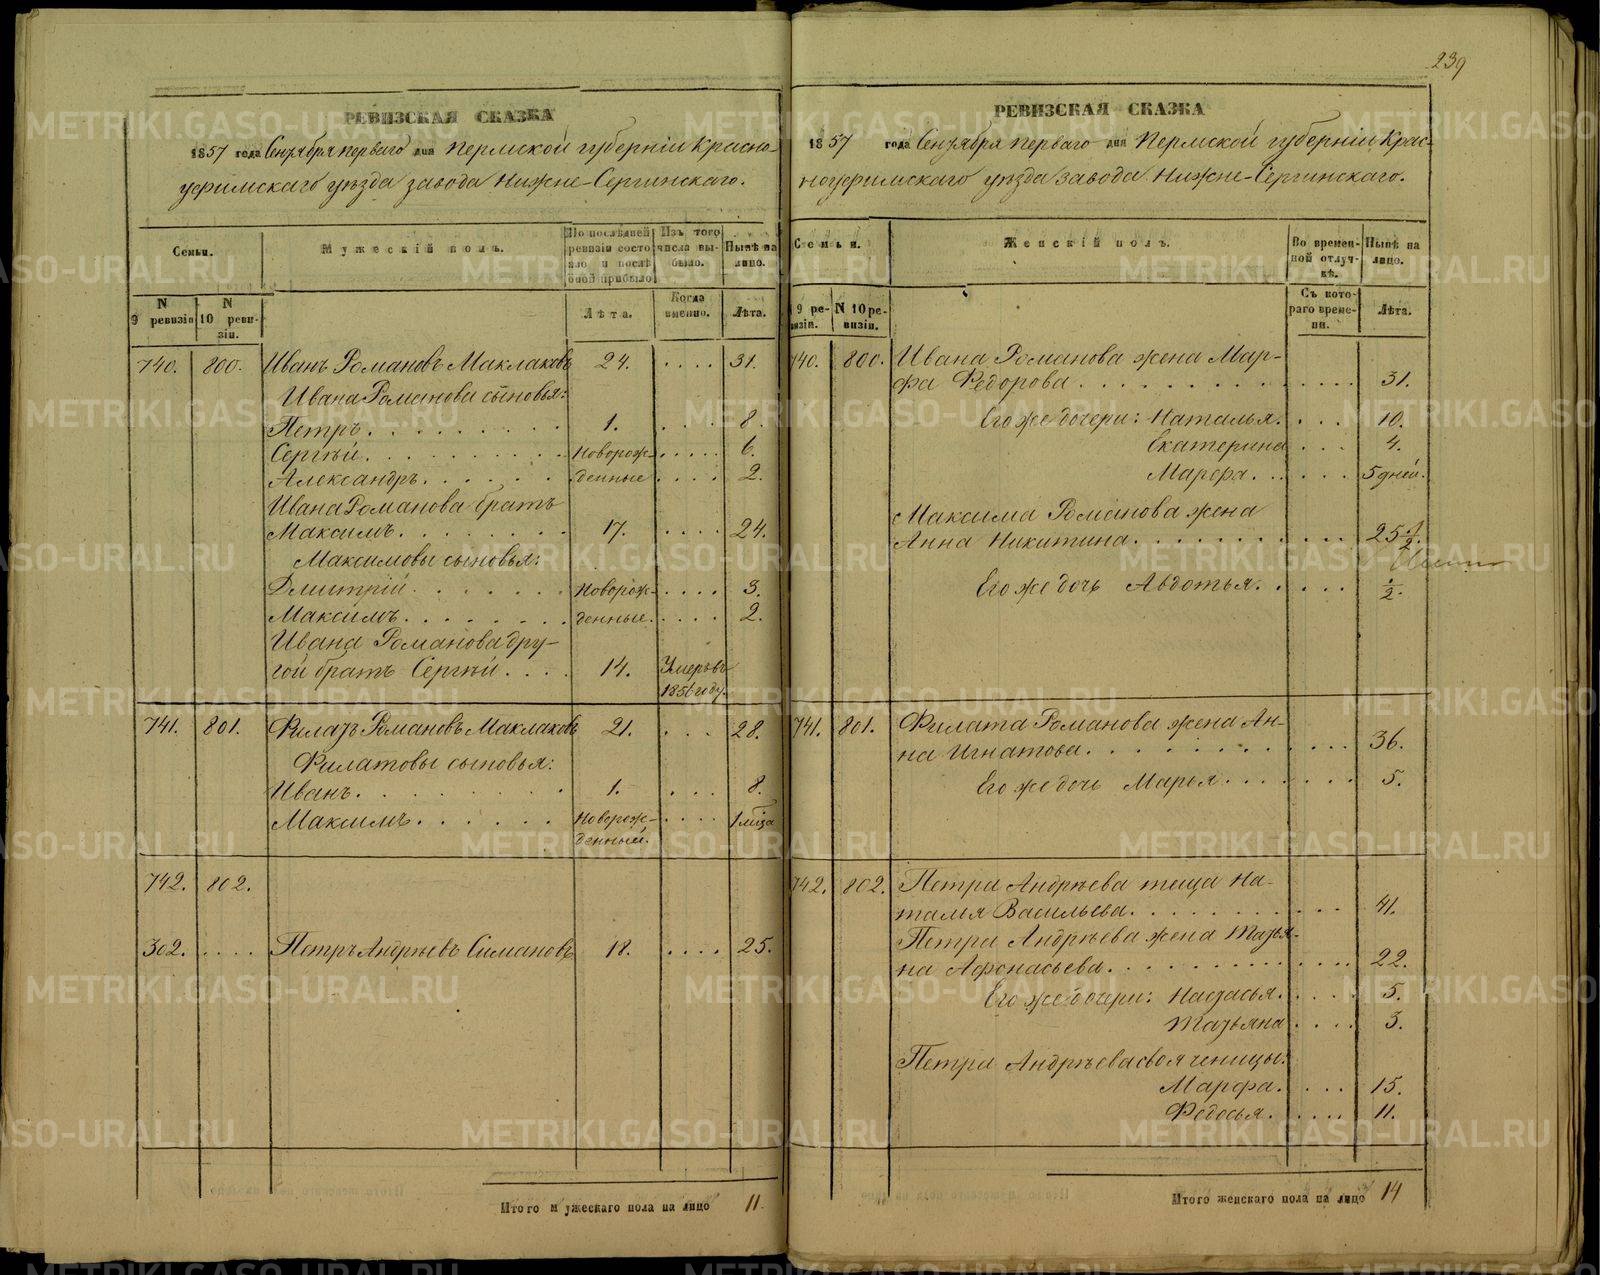 239
РЕВИЗСКАЯ СКАЗКА
1857 года Сентября перваго дня Пермской губерніи Красно-
уфимскаго уѣзда завода Нижне-Сергинскаго.
Семьи.
Мужескій полъ.
По послѣдней ревизіи состояло и послѣ оной прибыло.
Изъ того числа выбыло.
Нынѣ на лицо.
N 9 ревизіи
N 10 ревизіи.
Лѣта.
Когда именно.
Лѣта.
740. 800. Иванъ Романовъ Маклаковъ 24. .... 31.
Ивана Романова сыновья:
Петръ. 1. .... 8.
Сергѣй. Новорож- .... 6.
Александръ. денные .... 2.
Ивана Романова братъ
Максимъ. 17. .... 24.
Максимовы сыновья:
Дмитрій. Новорож- .... 3.
Максимъ. денные. .... 2.
Ивана Романова дру-
гой братъ Сергѣй .... 14. Умеръ въ
1856 году.
741. 801. Филатъ Романовъ Маклаковъ 21. ... 28.
Филатовы сыновья:
Иванъ. 1. ... 8.
Максимъ. Новорож- .... 1 м̃ца
денный.
742. 802.
302. .... Петръ Андрѣевъ Симановъ 18. .... 25.
Итого мужескаго пола на лицо 11.
РЕВИЗСКАЯ СКАЗКА
1857 года Сентября перваго дня Пермской губерніи Крас-
ноуфимскаго уѣзда завода Нижне-Сергинскаго.
Семьи.
Женскій полъ.
Во временной отлучкѣ.
Нынѣ на лицо.
9 ревизіи.
N 10 ревизіи.
Съ котораго времени.
Лѣта.
740. 800. Ивана Романова жена Мар-
фа Федорова. 31.
Его же дочери: Наталья. 10.
Екатерина 4.
Марфа. 5 дней.
Максима Романова жена
Анна Никитина. 25 1/2.
Его же дочь Авдотья. 1/2.
741. 801. Филата Романова жена Ан-
на Игнатова. 36.
Его же дочь Марья. 5.
742. 802. Петра Андрѣева теща На-
талья Васильева. 41.
Петра Андрѣева жена Татья-
на Афонасьева. 22.
Его же дочери: Настасья. 5.
Татьяна 3.
Петра Андрѣева свояченицы:
Марфа. 15.
Федосья. 11.
Итого женскаго пола на лицо 14
METRIKI.GASO-URAL.RU